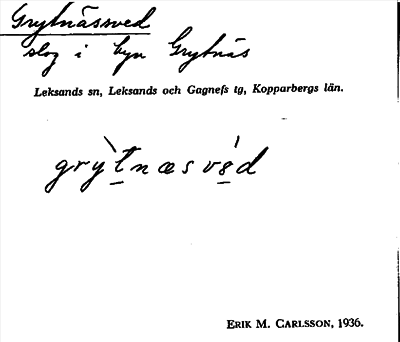 Grytnäsved
slog i byn Grytnäs
Leksands sn, Leksands och Gagnefs tg, Kopparbergs län.
grỳt̠næsvé̠d
ERIK M. CARLSSON, 1936.